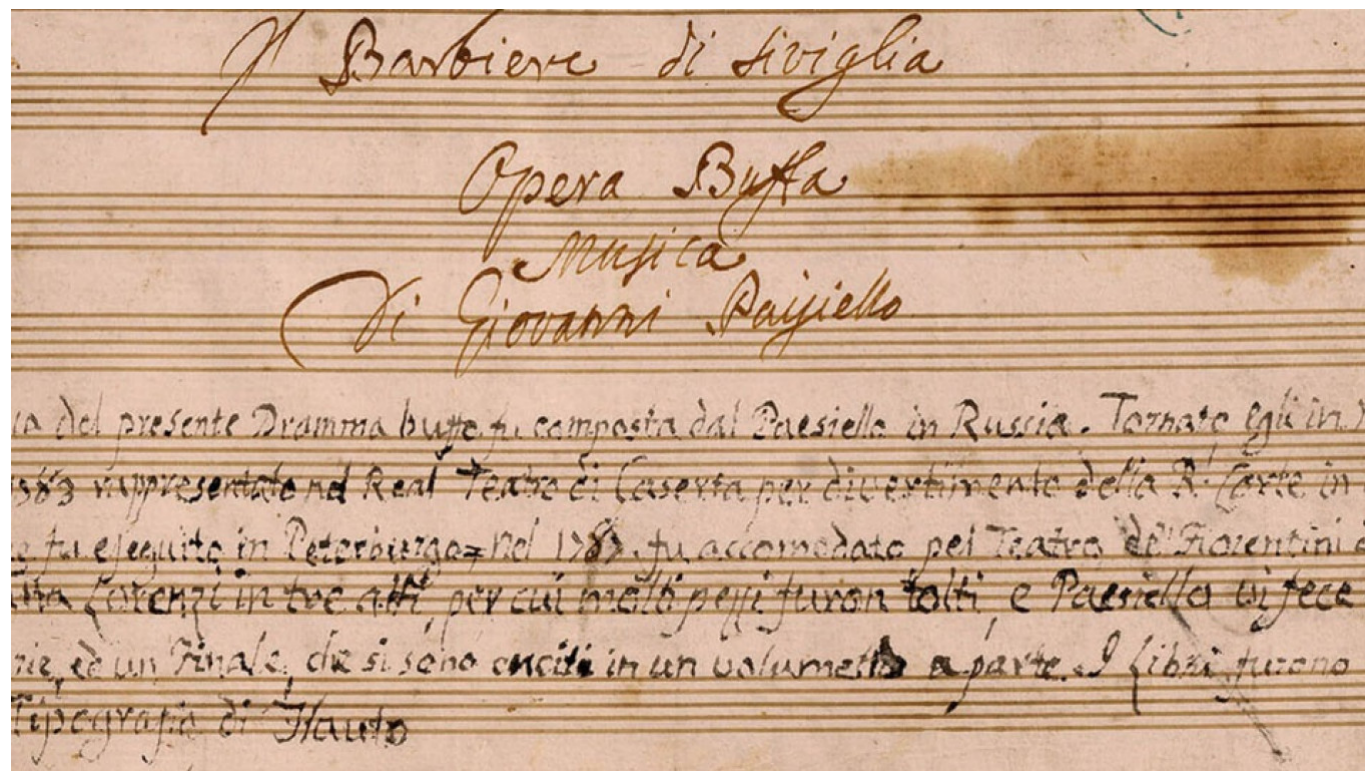 Il Barbiere di Siviglia
Opera Buffa
Musica
Di Giovanni Paisiello
del presente Dramma buffo fu composta dal Paesiello in Russia. Tornato egli in
1783 rappresentato nel Real Teatro di Caserta per divertimento della R. Corte in
fu eseguito in Peterburgo = Nel 1787. fu accomodato pel Teatro de' Fiorentini
Lorenzi in tre atti, per cui molti pezzi furon tolti, e Paesiello vi fece
ed un Finale, che si sono in un volumetto a parte. I libri furono
Tipografia di Flauto